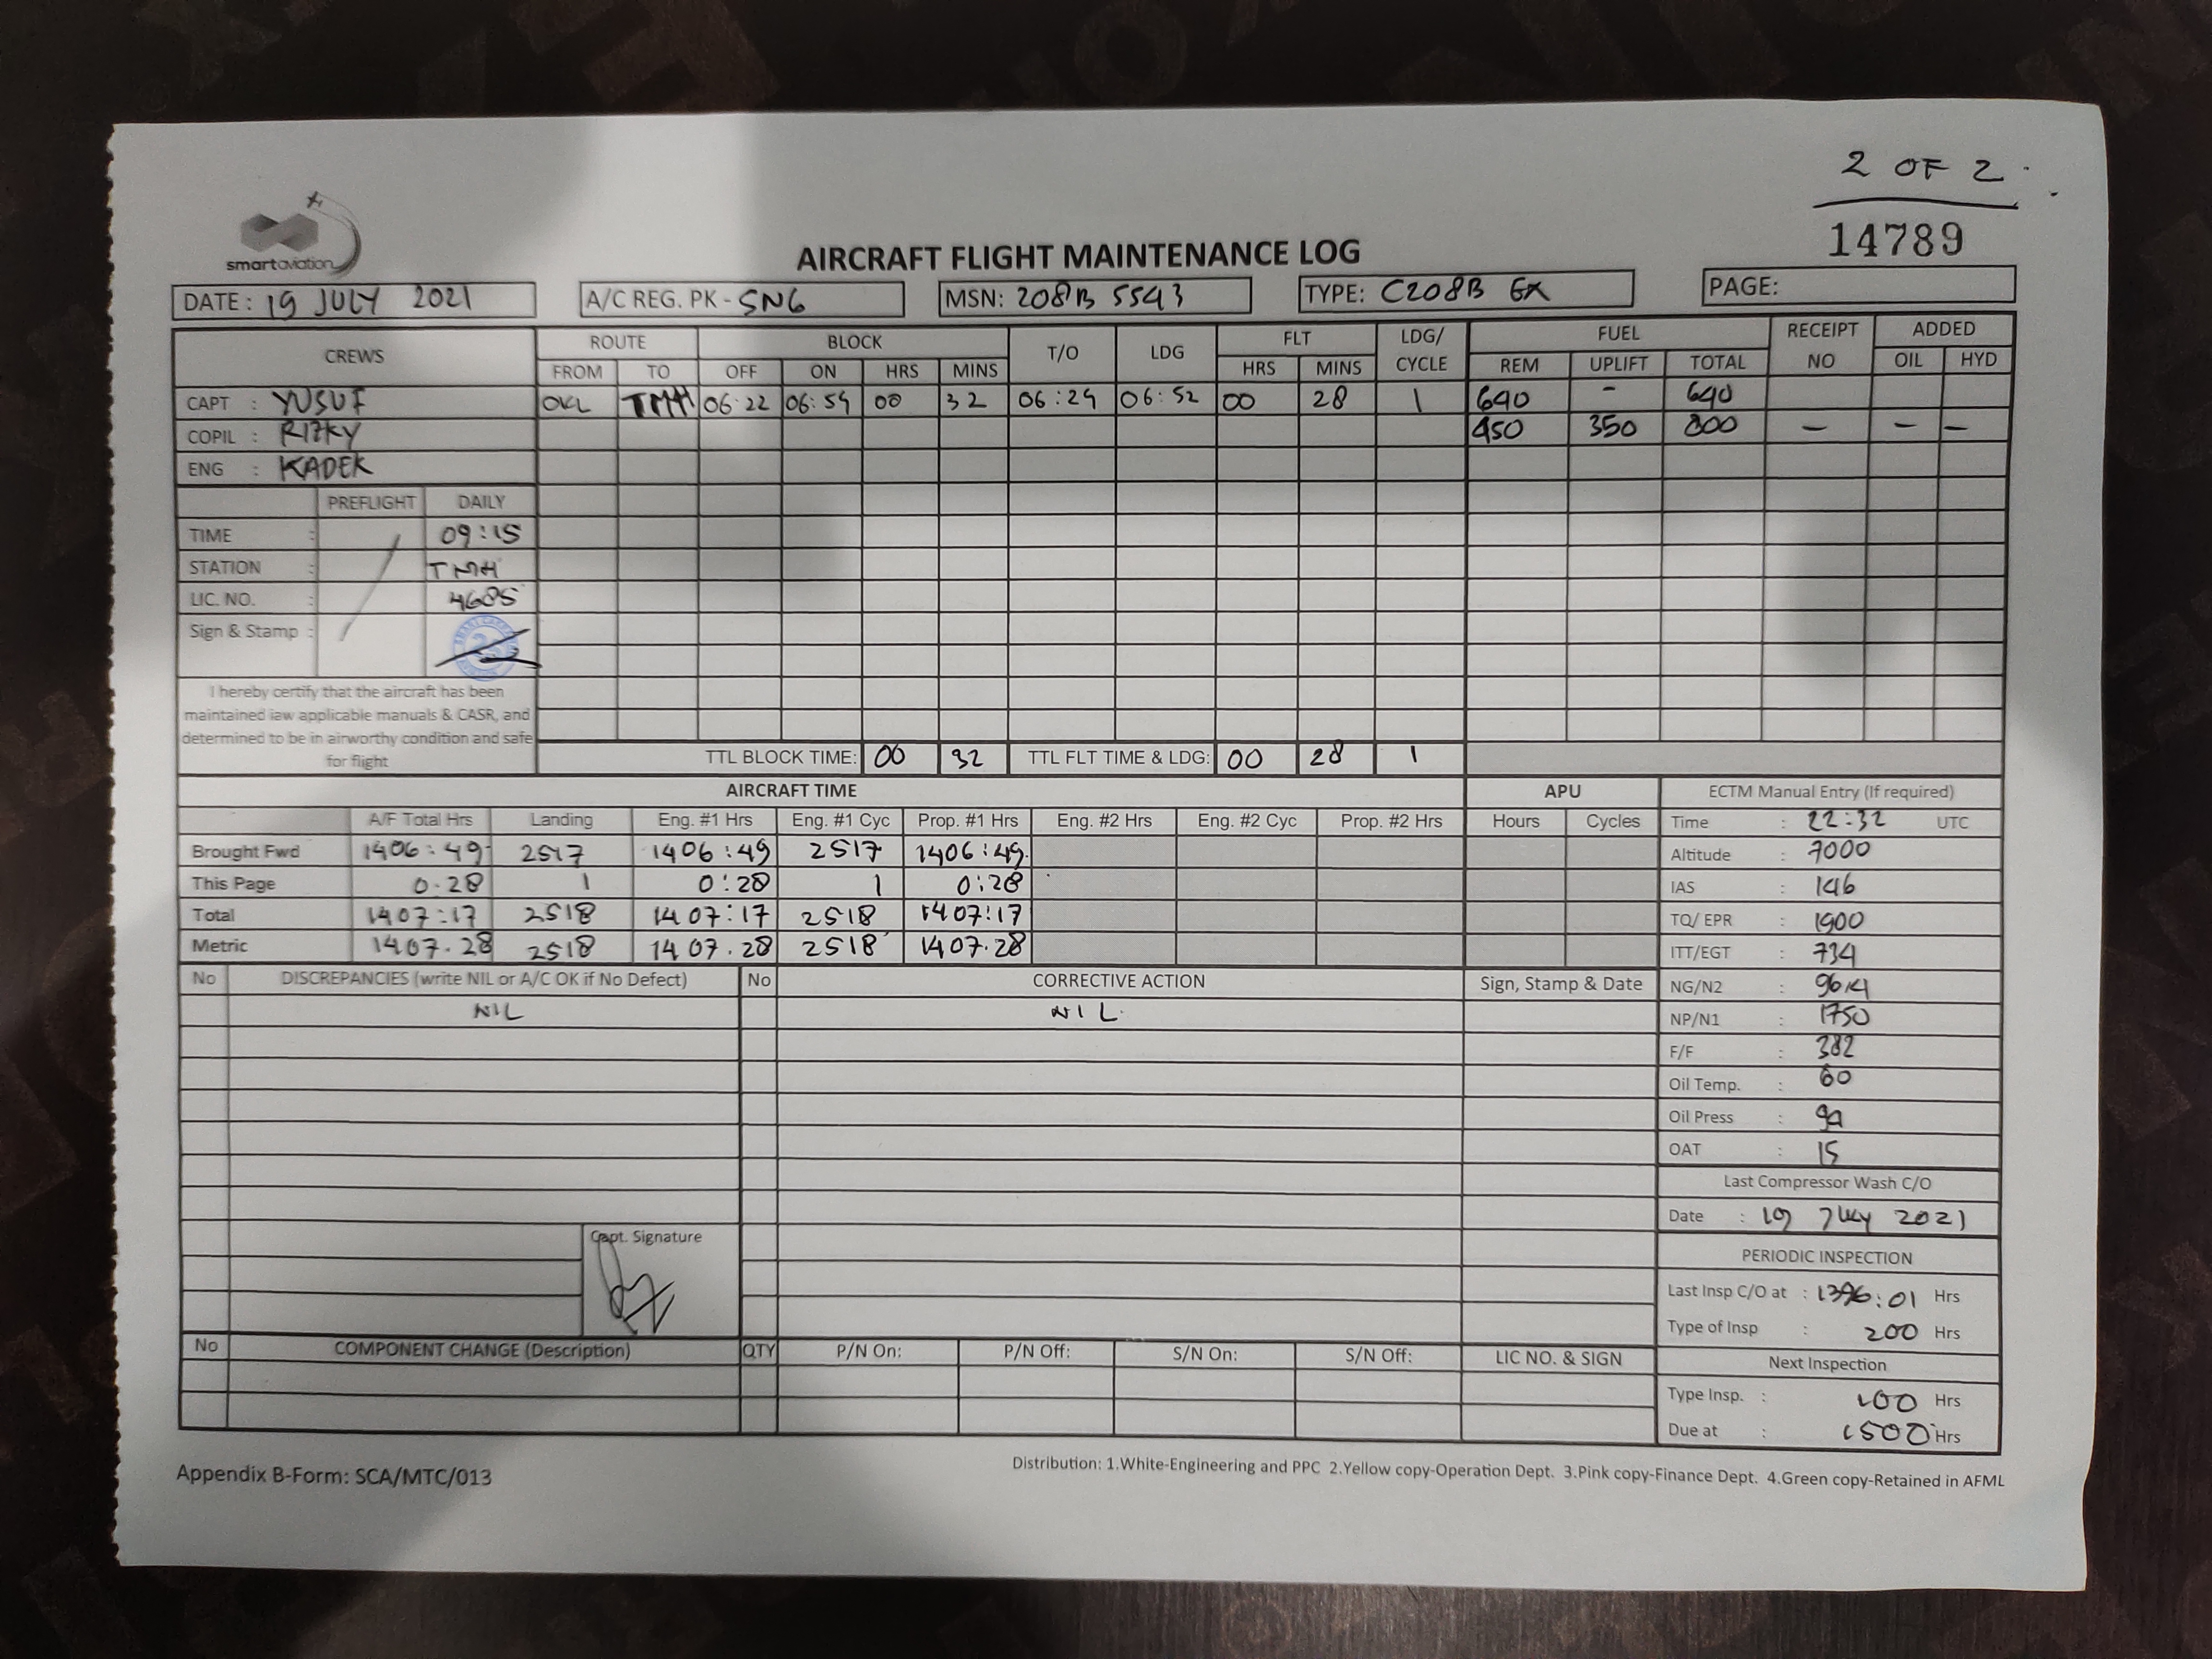 2 OF 2
14789
smartaviation
AIRCRAFT FLIGHT MAINTENANCE LOG
DATE : 19 JULY 2021 A/C REG. PK - SNG MSN: 208B 5543 TYPE: C208B EX PAGE:
CREWS ROUTE BLOCK T/O LDG FLT LDG/ CYCLE FUEL RECEIPT NO ADDED
FROM TO OFF ON HRS MINS HRS MINS REM UPLIFT TOTAL OIL HYD
CAPT : YUSUF OKL TMH 06:22 06:54 00 32 06:24 06:52 00 28 1 640 - 640
COPIL : RIZKY 450 350 800 - - -
ENG : KADEK
PREFLIGHT DAILY
TIME : 09:15
STATION : TMH
LIC. NO. : 4685
Sign & Stamp :
I hereby certify that the aircraft has been
maintained iaw applicable manuals & CASR, and
determined to be in airworthy condition and safe
for flight
TTL BLOCK TIME: 00 32 TTL FLT TIME & LDG: 00 28 1
AIRCRAFT TIME APU ECTM Manual Entry (If required)
A/F Total Hrs Landing Eng. #1 Hrs Eng. #1 Cyc Prop. #1 Hrs Eng. #2 Hrs Eng. #2 Cyc Prop. #2 Hrs Hours Cycles Time : 22:32 UTC
Brought Fwd 1406:49 2517 1406:49 2517 1406:49 Altitude : 7000
This Page 0.28 1 0:28 1 0:28 IAS : 146
Total 1407:17 2518 1407:17 2518 1407:17 TQ/ EPR : 1900
Metric 1407.28 2518 1407.28 2518 1407.28 ITT/EGT : 734
No DISCREPANCIES (write NIL or A/C OK if No Defect) No CORRECTIVE ACTION Sign, Stamp & Date NG/N2 :
NIL NIL. NP/N1 : 1750
F/F : 382
Oil Temp. : 60
Oil Press :
OAT : 15
Last Compressor Wash C/O
Date : 19 July 2021
Capt. Signature
PERIODIC INSPECTION
Last Insp C/O at : 1396:01 Hrs
Type of Insp : 200 Hrs
No COMPONENT CHANGE (Description) QTY P/N On: P/N Off: S/N On: S/N Off: LIC NO. & SIGN Next Inspection
Type Insp. : 100 Hrs
Due at : 1500 Hrs
Appendix B-Form: SCA/MTC/013
Distribution: 1.White-Engineering and PPC 2.Yellow copy-Operation Dept. 3.Pink copy-Finance Dept. 4.Green copy-Retained in AFML